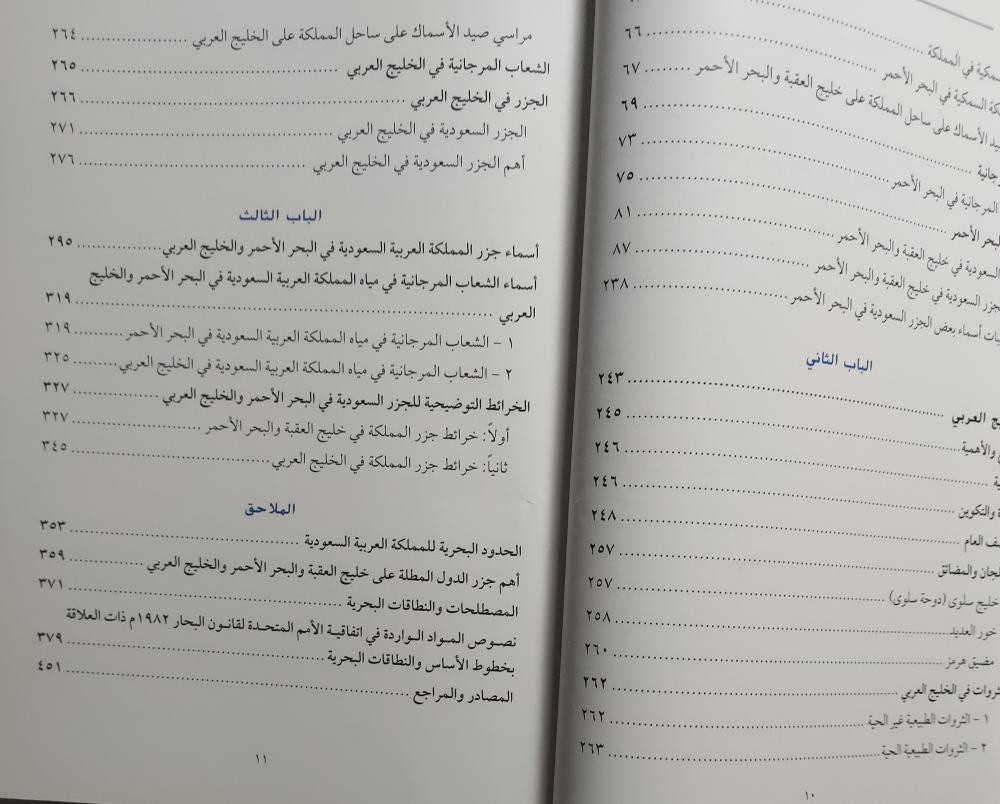 سمكية في المملكة ................
السمكية في البحر الأحمر ................ ٦٦
صيد الأسماك على ساحل المملكة على خليج العقبة والبحر الأحمر ........ ٦٧
................ ٦٩
المرجانية في البحر الأحمر ................ ٧٣
البحر الأحمر ................ ٧٥
السعودية في خليج العقبة والبحر الأحمر ................ ٨١
الجزر السعودية في خليج العقبة والبحر الأحمر ................ ٨٧
أسماء بعض الجزر السعودية في البحر الأحمر ................ ٢٣٨
الباب الثاني
العربي ................ ٢٤٣
والأهمية ................ ٢٤٥
................ ٢٤٦
والتكوين ................ ٢٤٦
العام ................ ٢٤٨
والمضائق ................ ٢٥٧
خليج سلوى (دوحة سلوى) ................ ٢٥٧
خور العديد ................ ٢٥٨
مضيق هرمز ................ ٢٦٠
الثروات في الخليج العربي ................ ٢٦٢
١ - الثروات الطبيعية غير الحية ................ ٢٦٢
٢ - الثروات الطبيعية الحية ................ ٢٦٣
١٠
مراسي صيد الأسماك على ساحل المملكة على الخليج العربي ................ ٢٦٤
الشعاب المرجانية في الخليج العربي ................ ٢٦٥
الجزر في الخليج العربي ................ ٢٦٦
الجزر السعودية في الخليج العربي ................ ٢٧١
أهم الجزر السعودية في الخليج العربي ................ ٢٧٦
الباب الثالث
أسماء جزر المملكة العربية السعودية في البحر الأحمر والخليج العربي ................ ٢٩٥
أسماء الشعاب المرجانية في مياه المملكة العربية السعودية في البحر الأحمر والخليج
العربي ................ ٣١٩
١ - الشعاب المرجانية في مياه المملكة العربية السعودية في البحر الأحمر .......... ٣١٩
٢ - الشعاب المرجانية في مياه المملكة العربية السعودية في الخليج العربي ......... ٣٢٥
الخرائط التوضيحية للجزر السعودية في البحر الأحمر والخليج العربي ................ ٣٢٧
أولاً: خرائط جزر المملكة في خليج العقبة والبحر الأحمر ................ ٣٢٧
ثانياً: خرائط جزر المملكة في الخليج العربي ................ ٣٤٥
الملاحق
الحدود البحرية للمملكة العربية السعودية ................ ٣٥٣
أهم جزر الدول المطلة على خليج العقبة والبحر الأحمر والخليج العربي ................ ٣٥٩
المصطلحات والنطاقات البحرية ................ ٣٧١
نصوص المواد الواردة في اتفاقية الأمم المتحدة لقانون البحار ١٩٨٢م ذات العلاقة
بخطوط الأساس والنطاقات البحرية ................ ٣٧٩
المصادر والمراجع ................ ٤٥١
١١